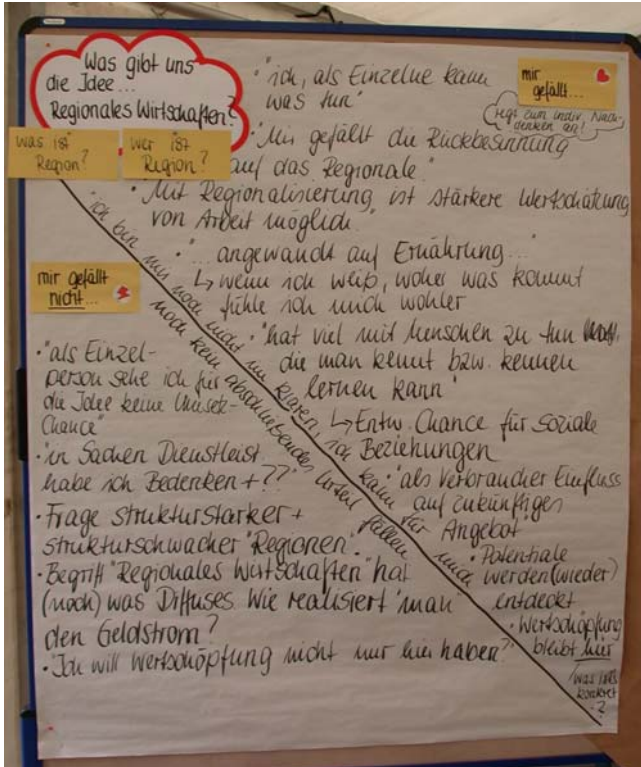 Was gibt uns
die Idee...
Regionales Wirtschaften?
was ist
Region?
wer ist
Region?
mir
gefällt...
regt zum indiv. Nach-
denken an!
• "ich, als Einzelne kann
was tun"
• "Mir gefällt die Rückbesinnung
auf das Regionale."
• "Mit Regionalisierung ist stärkere Wertschätzung
von Arbeit möglich."
• "... angewandt auf Ernährung..."
↳ wenn ich weiß, woher was kommt
fühle ich mich wohler
• "hat viel mit Menschen zu tun
die man kennt bzw. kennen
lernen kann"
↳ Entw. Chance für soziale
Beziehungen
• "als Verbraucher Einfluss
auf zukünftiges
Angebot"
• Potentiale
werden (wieder)
entdeckt
• Wertschöpfung
bleibt hier
was ists
konkret
?
"ich bin mir noch nicht im klaren, ich kann für mich
noch kein abschließendes Urteil fällen
mir gefällt
nicht...
• "als Einzel-
person sehe ich für
die Idee keine Umsetz-
Chance"
• "in Sachen Dienstleist.
habe ich Bedenken + ??"
• Frage strukturstarker +
strukturschwacher "Regionen".
• Begriff "Regionales Wirtschaften" hat
(noch) was Diffuses. Wie realisiert "man"
den Geldstrom?
• "Ich will Wertschöpfung nicht nur hier haben?"